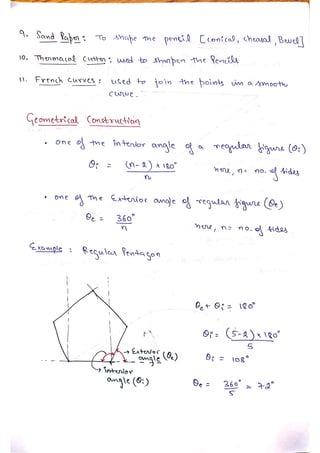 9. Sand Paper : To shape the pencil [conical, cheasal, Bevel]
10. Thermacol Cutter : used to sharpen the Pencils
11. French curves : used to join the points in a smooth
curve.
Geometrical Construction
• one of the interior angle of a regular figure (θi)
θi = (n-2) x 180°
n
here, n = no. of sides
• one of the Exterior angle of regular figure (θe)
θe = 360°
n
here, n = no. of sides
Example : Regular Pentagon
θe + θi = 180°
θi = (5-2) x 180°
5
θi = 108°
θe = 360° = 72°
5
→ Exterior
angle (θe)
→ interior
angle (θi)